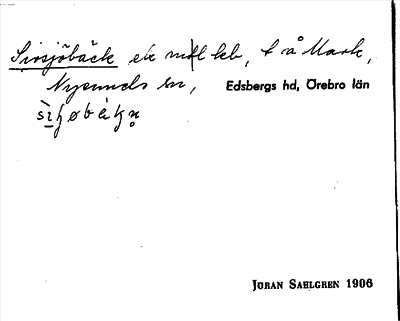 Sirsjöbäck ek mfl kb, t å Mark,
Nysunds sn, Edsbergs hd, Örebro län
JÖRAN SAHLGREN 1906